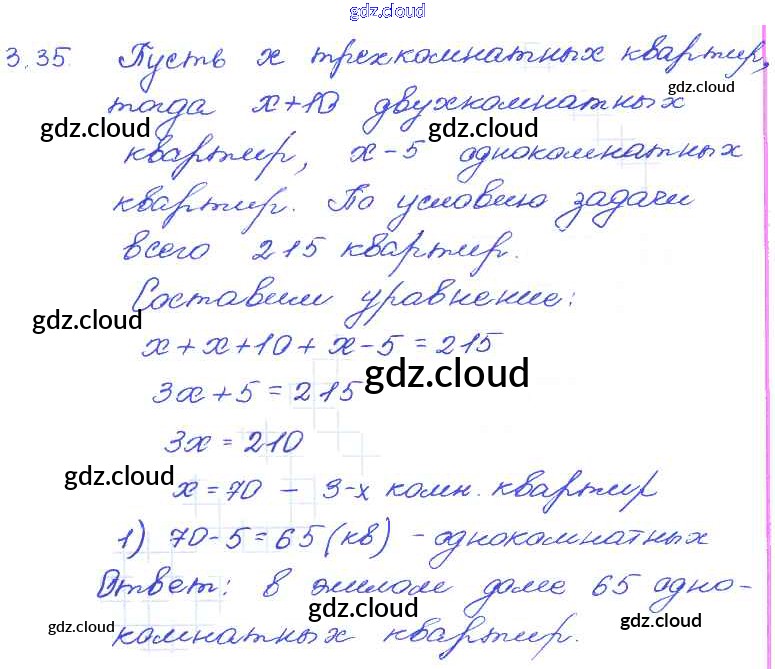 gdz.cloud
3.35. Пусть x трехкомнатных квартир,
gdz.cloud
тогда x+10 двухкомнатных
gdz.cloud gdz.cloud
квартир, x-5 однокомнатных
квартир. По условию задачи
всего 215 квартир.
Составим уравнение:
gdz.cloud
x+x+10+x-5=215
gdz.cloud
3x+5=215
3x=210
gdz.cloud
x=70 - 3-х комн. квартир
1) 70-5=65 (кв) - однокомнатных
Ответ: в жилом доме 65 одно-
gdz.cloud
gdz.cloud gdz.cloud
комнатных квартир.